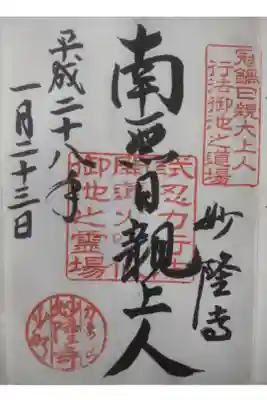 冠鍋日親大上人
行法御池之道場
妙隆寺
南無日親上人
御池之霊場
平成二十八年
一月二十三日
妙隆寺